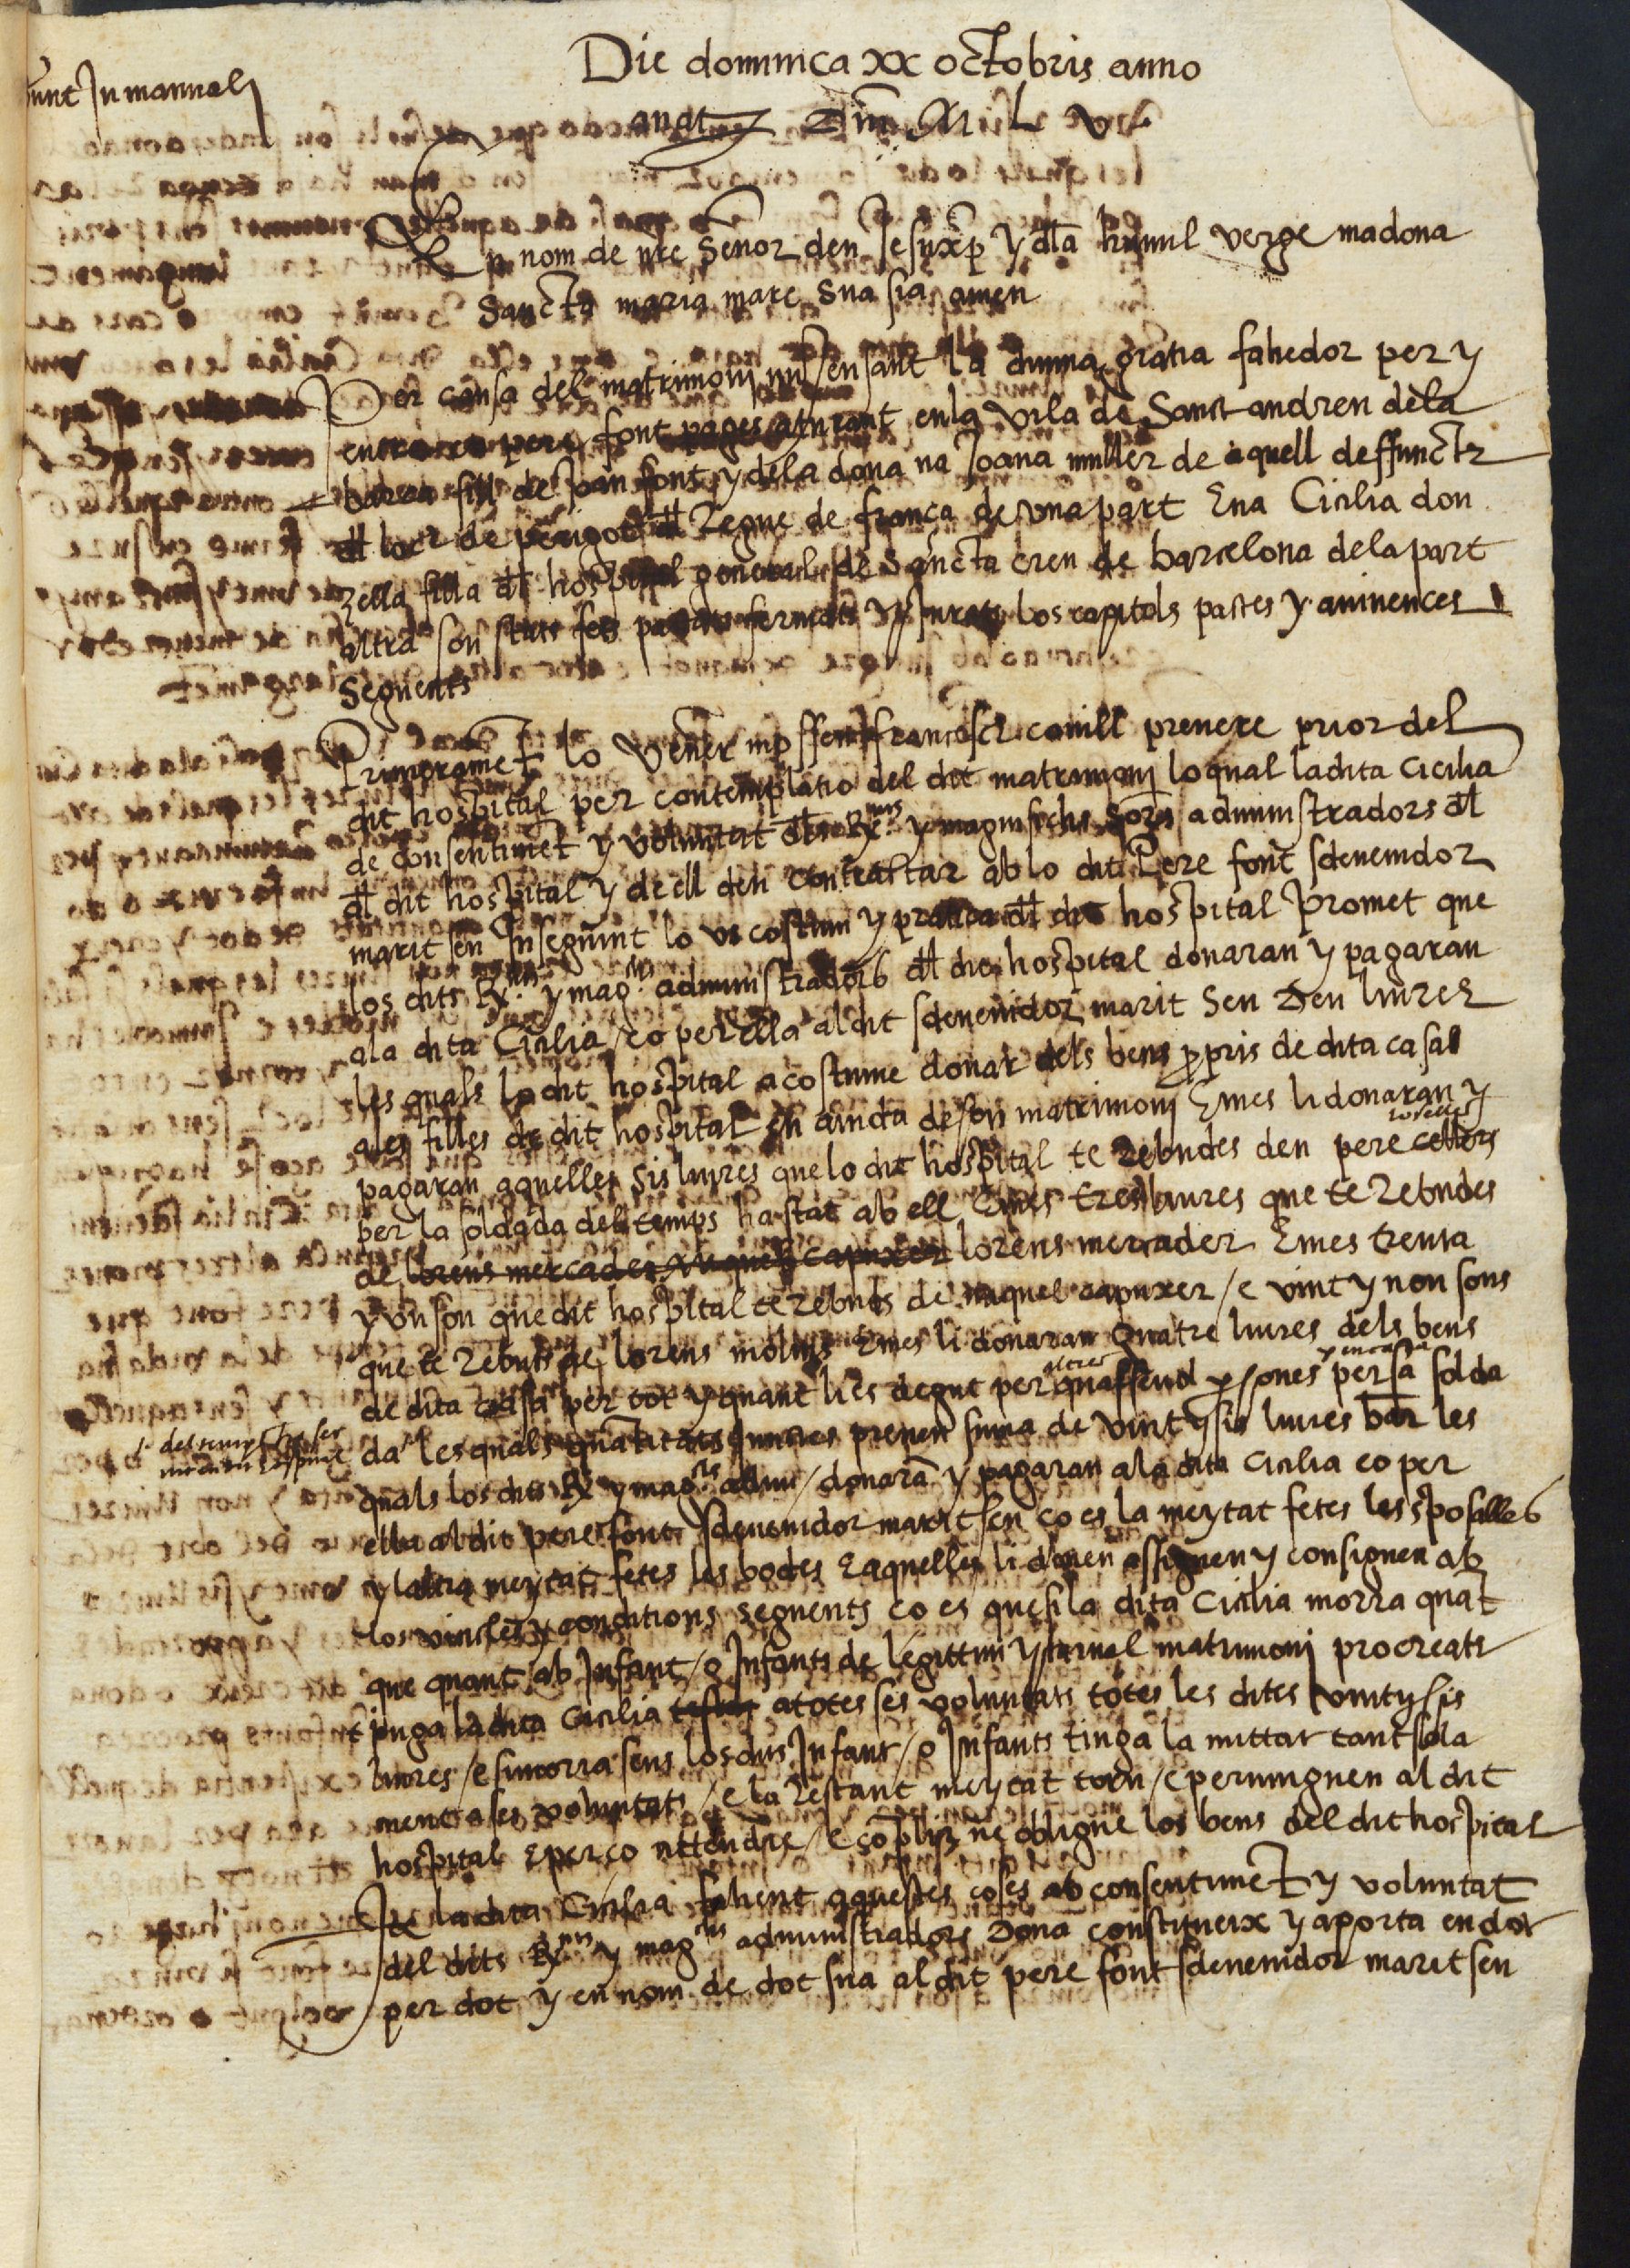 Die dominica xx octobris anno
sunt In manuali
anat Dni M L v
En nom de nre Senor deu Jesuxp y dla humil verge madona
Sancta maria mare Sua sia amen
Per causa del matrimoni mijensant la divina gratia fahedor per y
entre en pere font pages aturant en la vila de Sanct andreu dela
barca fill de Joan font y dela dona na Joana muller de aquell deffuncts
dl loch de perigot dl Regne de franca de una part E na Cicilia don
zella filla dl hospital general de Sancta creu de barcelona dela part
altra son stats fets pactats fermats y Jurats los capitols pactes y avinences
Seguents
Primeramet lo vener mossen francesch capvill prevere prior del
dit hospital per contemplatio del dit matrimoni lo qual la dita Cicilia
de consentimet y voluntat dls Rx nts y magnifichs Sors administradors dl
dl dit hospital y de ell deu contractar ab lo dit Pere font sdevenidor
marit seu Inseguint lo us costum y pratica dl dit hospital Promet que
los dits Rx nts y mag chs administradors dl dit hospital donaran y pagaran
ala dita Cicilia / co per ella al dit sdevenidor marit Seu Deu liures
les quals lo dit hospital acostume donar dels bens ppris de dita casa
ales filles de dit hospital en aiuda de son matrimoni E mes li donaran y
pagaran aquelles sis liures que lo dit hospital te rebudes den pere cellers
per la soldada del temps ha stat ab ell E mes tres liures que te rebudes
de lorens mercader miquel capuxer lorens mercader E mes trenta
y un sou que dit hospital te rebuts de miquel capuxer / e vint y nou sous
que te rebuts de lorens molins E mes li donaran Quatre liures dels bens
de dita casa per tot y quant li es degut per altres qualsevol psones y en casa per sa solda
da les quals quantitats Juntes prenen suma de vint y sis liures bar les
quals los dits Rx y mag chs admi / donara y pagaran ala dita Cicilia co per
ella al dit pere font sdevenidor marit seu co es la meytat fetes les sposalles
y laltra meytat fetes les bodes E aquelles li donen assignen y consignen ab
los vincles y conditions seguents co es que si la dita Cicilia morra quat
que quant ab Infant / o Infants de legittim y carnal matrimoni procreats
puga la dita Cicilia testar a totes ses voluntats totes les dites vint y sis
liures / e si moria sens los dits Infant / o Infants tinga la mittat tant sola
ment a ses voluntats / e la restant meytat torn / e pervingnen al dit
hospital E per co attendre / e coplir ne obligue los bens del dit hospital
It la dita Cicilia fahent aquestes coses ab consentimet y voluntat
del dits Rx nts y mag chs administradors Dona constitueix y aporta en dot
per dot y en nom de dot sua al dit pere font sdevenidor marit seu